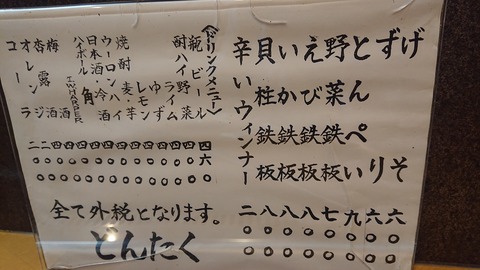 げそ 六〇〇
ずり 六〇〇
とんぺい 九〇〇
野菜鉄板 七〇〇
えび鉄板 八〇〇
いか鉄板 八〇〇
貝柱鉄板 八〇〇
辛いウィンナー 二〇〇
〈ドリンクメニュー〉
瓶ビール 四六〇
酎ハイ 野菜 四〇〇
ライム 四〇〇
ゆず 四〇〇
レモン 四〇〇
焼酎 麦・芋 四〇〇
ウーロンハイ 四〇〇
日本酒 冷酒 四〇〇
ハイボール 角 四〇〇
I.W.HARPER 四〇〇
梅酒 四〇〇
杏露酒 四〇〇
オレンジ 二〇〇
コーラ 二〇〇
全て外税となります。
とんたく